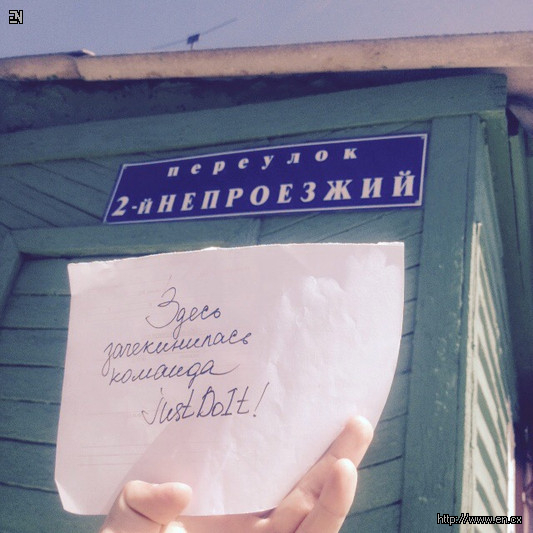 EN
переулок
2-й НЕПРОЕЗЖИЙ
Здесь
зачекинилась
команда
JustDoIt!
http://www.en.cx